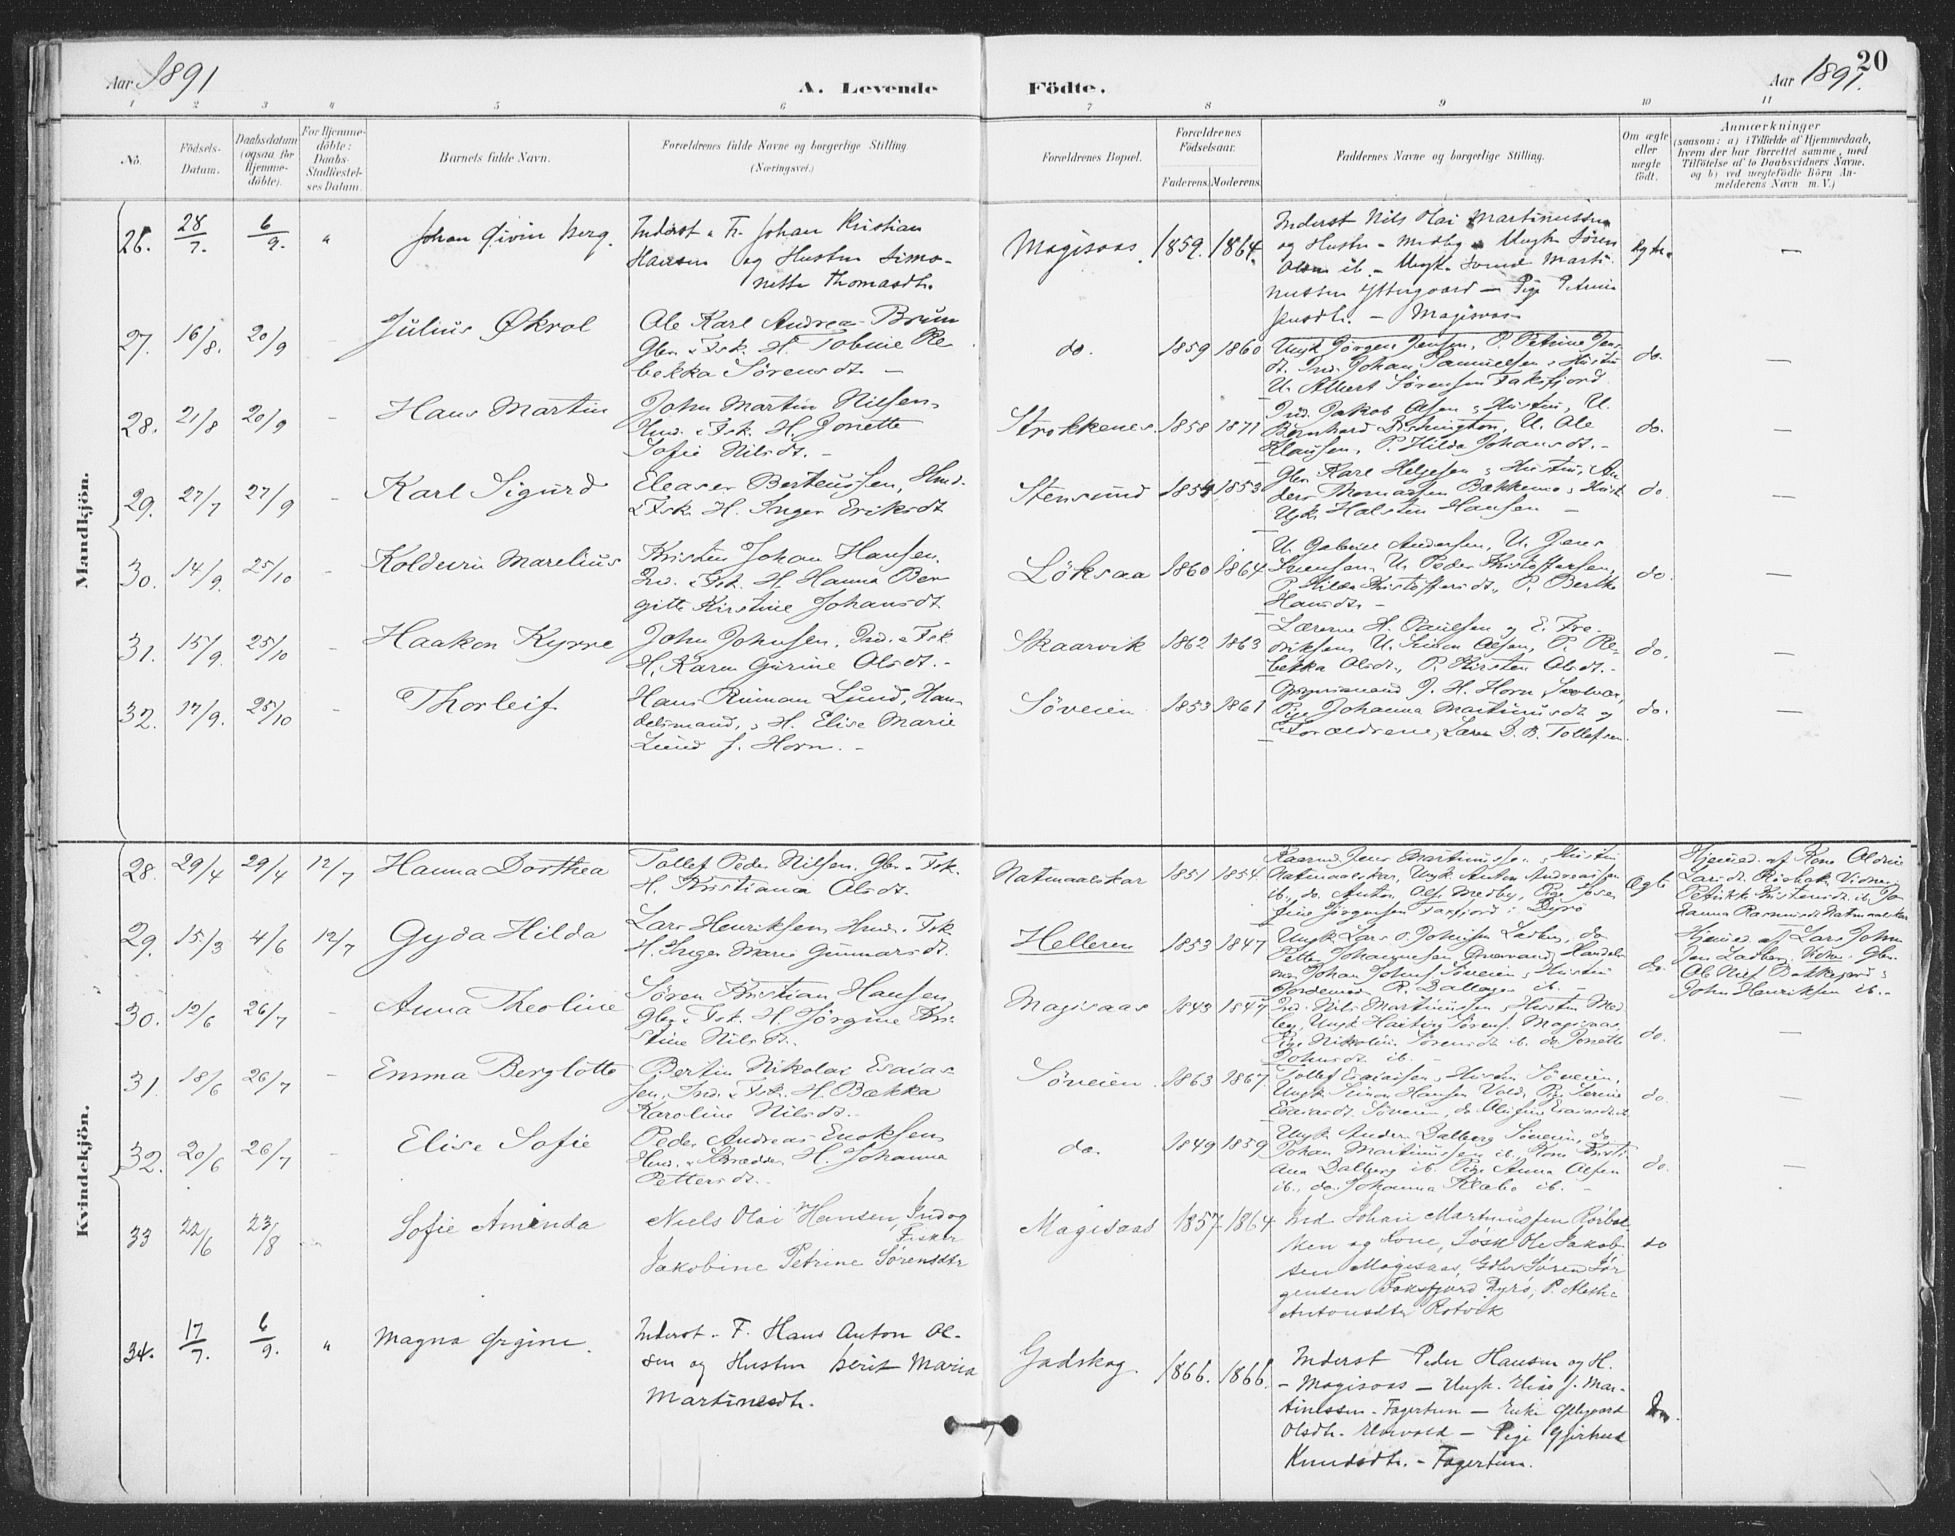 Aar 1891
A. Levende Fødte.
Aar 1891.
20
1 2 3 4 5 6 7 8 9 10 11
No.
Födsels-Datum.
Daabsdatum (ogsaa for Hjemme-döbte).
For Hjemme-döbte: Daabs-Stadfæstel-ses Datum.
Barnets fulde Navn.
Forældrenes fulde Navne og borgerlige Stilling.
(Næringsvei.)
Forældrenes Bopæl.
Forældrenes Födselsaar.
Faderens. Moderens.
Faddernes Navne og borgerlige Stilling.
Om ægte eller uægte födt.
Anmærkninger
(saasom: a) i Tilfælde af Hjemmedaab,
hvem der har forrettet samme, med
Tilföielse af to Daabsvidners Navne.
og b) ved uægtefödte Börn An-
melderens Navn m. V.)
Mandkjön.
26. 28/7. 6/9. " Johan Eivin Berg.
Inderst & F. Johan Kristian
Hansen og Hustru Simo-
nette Thomasdtr.
Magisaas. 1859. 1864.
Inderst Nils Olai Martinussen
og Hustru - Medby - Ungk. Søren
Olsen ib. - Ungk. Marti-
nussen Yttergaard - Pige Petrine
Jensdtr. - Magisaas
ægte. —
27. 16/8. 20/9 - Julius Økrol
Ole Karl Andreas Brun
Gbr. & Fsk. H. Tobine Re-
bekka Sørensdt. -
do. 1859 1860
Ungk. Jørgen Jensen, P. Petrine Jens-
dt. Ind. Johan Samuelsen & Hustru
U. Albert Sørensen Faksfjord.
do. —
28. 21/8 20/9 - Hans Martin
John Martin Nilsen,
Hmd. & Fsk. H. Jonette
Sofie Nilsdt. -
Strokkenes. 1858 1871
Ind. Jakob Olsen & Hustru, U.
Bernhard U. Ole
Klausen, P. Hilda Johansdt. -
do. —
29. 27/7 27/9 - Karl Sigurd
Eleaser Berteussen, Hmd.
& Fsk. H. Inger Eriksdt
Stensund 1854 1853
Gbr. Karl Helgesen & Hustru, An-
ders Thomassen Bækkemo & Hust.
Ungk. Halstein Hansen -
do. —
30. 14/9. 25/10 - Koldevin Marelius
Kristen Johan Hansen.
Ind. & Fsk. H. Hanna Ber-
gitte Kirstine Johansdt
Løksaa 1860 1864
U. Gabriel Andersen, U. Jens
Svensen, U. Peder Kristoffersen,
P. Hilda Kristoffersdt., P. Berthe
Hansdt. -
do. —
31. 15/9. 25/10 - Haakon Kyrre
John Johnsen, Ind. & Fsk
H. Karen Gurine Olsdt. -
Skaarvik 1862 1863
Lærerne H. Paulsen og E. Fre-
driksen, U. Simon Olsen, P. Re-
bekka Olsdt., P. Kirsten Olsdt. -
do. —
32. 17/9. 25/10 - Thorleif
Hans Lund, Han-
delsmand, & H. Elise Marie
Lund f. Horn. -
Søveien 1853 1861
J. H. Horn
Pige Johanna Martinusdt og
Forældrene, Lærer D. B. Tollefsen.
do. —
Kvindekjön.
28. 29/4 29/4 12/7 Hanna Dorthea
Tollef Peder Nilsen, Gbr. & Fsk.
H. Kristiana Olsdt.
Natmaalskar 1851 1854
Jens Martinussen, Hustru
Natmaalskar, Ungk. Anton Andreassen
ib., do. Anton Ols. Medby, Pige Jose-
fine Jørgensen Faxfjord i Dyrø
Ægte
Hjemmed. af Kone Oldine
Larsdt. Vidner:
Petrikke Kristensdt. ib. Jo-
hanna Rasmusdt Natmaalskar
29. 15/3 4/6 12/7 Gyda Hilda
Lars Henriksen, Hmd. & Fsk
H. Inger Marie Gunnarsdt.
Helleren 1853 1847
Ungk. Lars O. Johnsen Ladberg, do
Petter Johannesen Handels-
m. Johan Johns. Søveien & Hustru
R. Dalhaug ib. -
do.
Hjemmed. af Lars John-
sen Ladberg. Vidner: Gbr.
Ole Nils. Bakkejord &
John Henriksen ib. -
30. 12/6 26/7 - Anna Theoline
Søren Kristian Hansen,
Gbr. & Fsk. H. Jørgine Kri-
stine Nilsdt.
Magisaas 1843 1847
Ind. Nils Martinussen & Hustru Med-
by, Ungk. Hartvig Sørens. Magisaas,
Pige Nikoline Sørensdt ib. do Jonette
Johnsdt ib. -
do. —
31. 18/6 26/7 - Emma Berglotte
Bertin Nikolai Esaias-
sen, Ind. & Fsk. H. Bækka
Karoline Nilsdt. -
Søveien. 1863 1867
Tollef Esaiassen, Hustru, Søveien,
Ungk. Simon Hansen Vold, Pige Serine
Esaiasdt. Søveien, do
do. —
32. 20/6 26/7 - Elise Sofie
Peder Andreas Enoksen
Hmd. & Skrædder, H. Johanna
Pettersdt. -
do. 1849 1859
Ungk. Anders Dalberg Søveien, do
Johan Martinussen ib., Kone Kristi-
ana Dalberg ib. Pige Anna Olsen
ib., do. Johanna ib. -
do. —
33 22/6 23/8 Sofie Aminda
Niels Olai Hansen, Ind og
Fisker
Jakobine Petrine Sørensdtr
Magisaas 1857 1864
Ind Johan Martinussen Rörbak-
ken og Kone, Ole Jakob-
sen Magisaas, Gdbr Sören Jör-
gensen Faksfjord Dyrø, P. Alethe
Antonsdtr Rotvik
do
34. 17/7. 6/9. " Magna Ørgine.
Inderst & F. Hans Anton Ol-
sen og Hustru Berit Maria
Martinesdtr.
Gadskog 1866. 1866.
Inderst Peder Hansen og H.
- Magisaas - Ungk. Elias J. Mar-
tinussen - Fagertun - Enke
Olsdtr. Elvevold - Pige Gjertrud
Knudsdtr. - Fagertun.
Do.